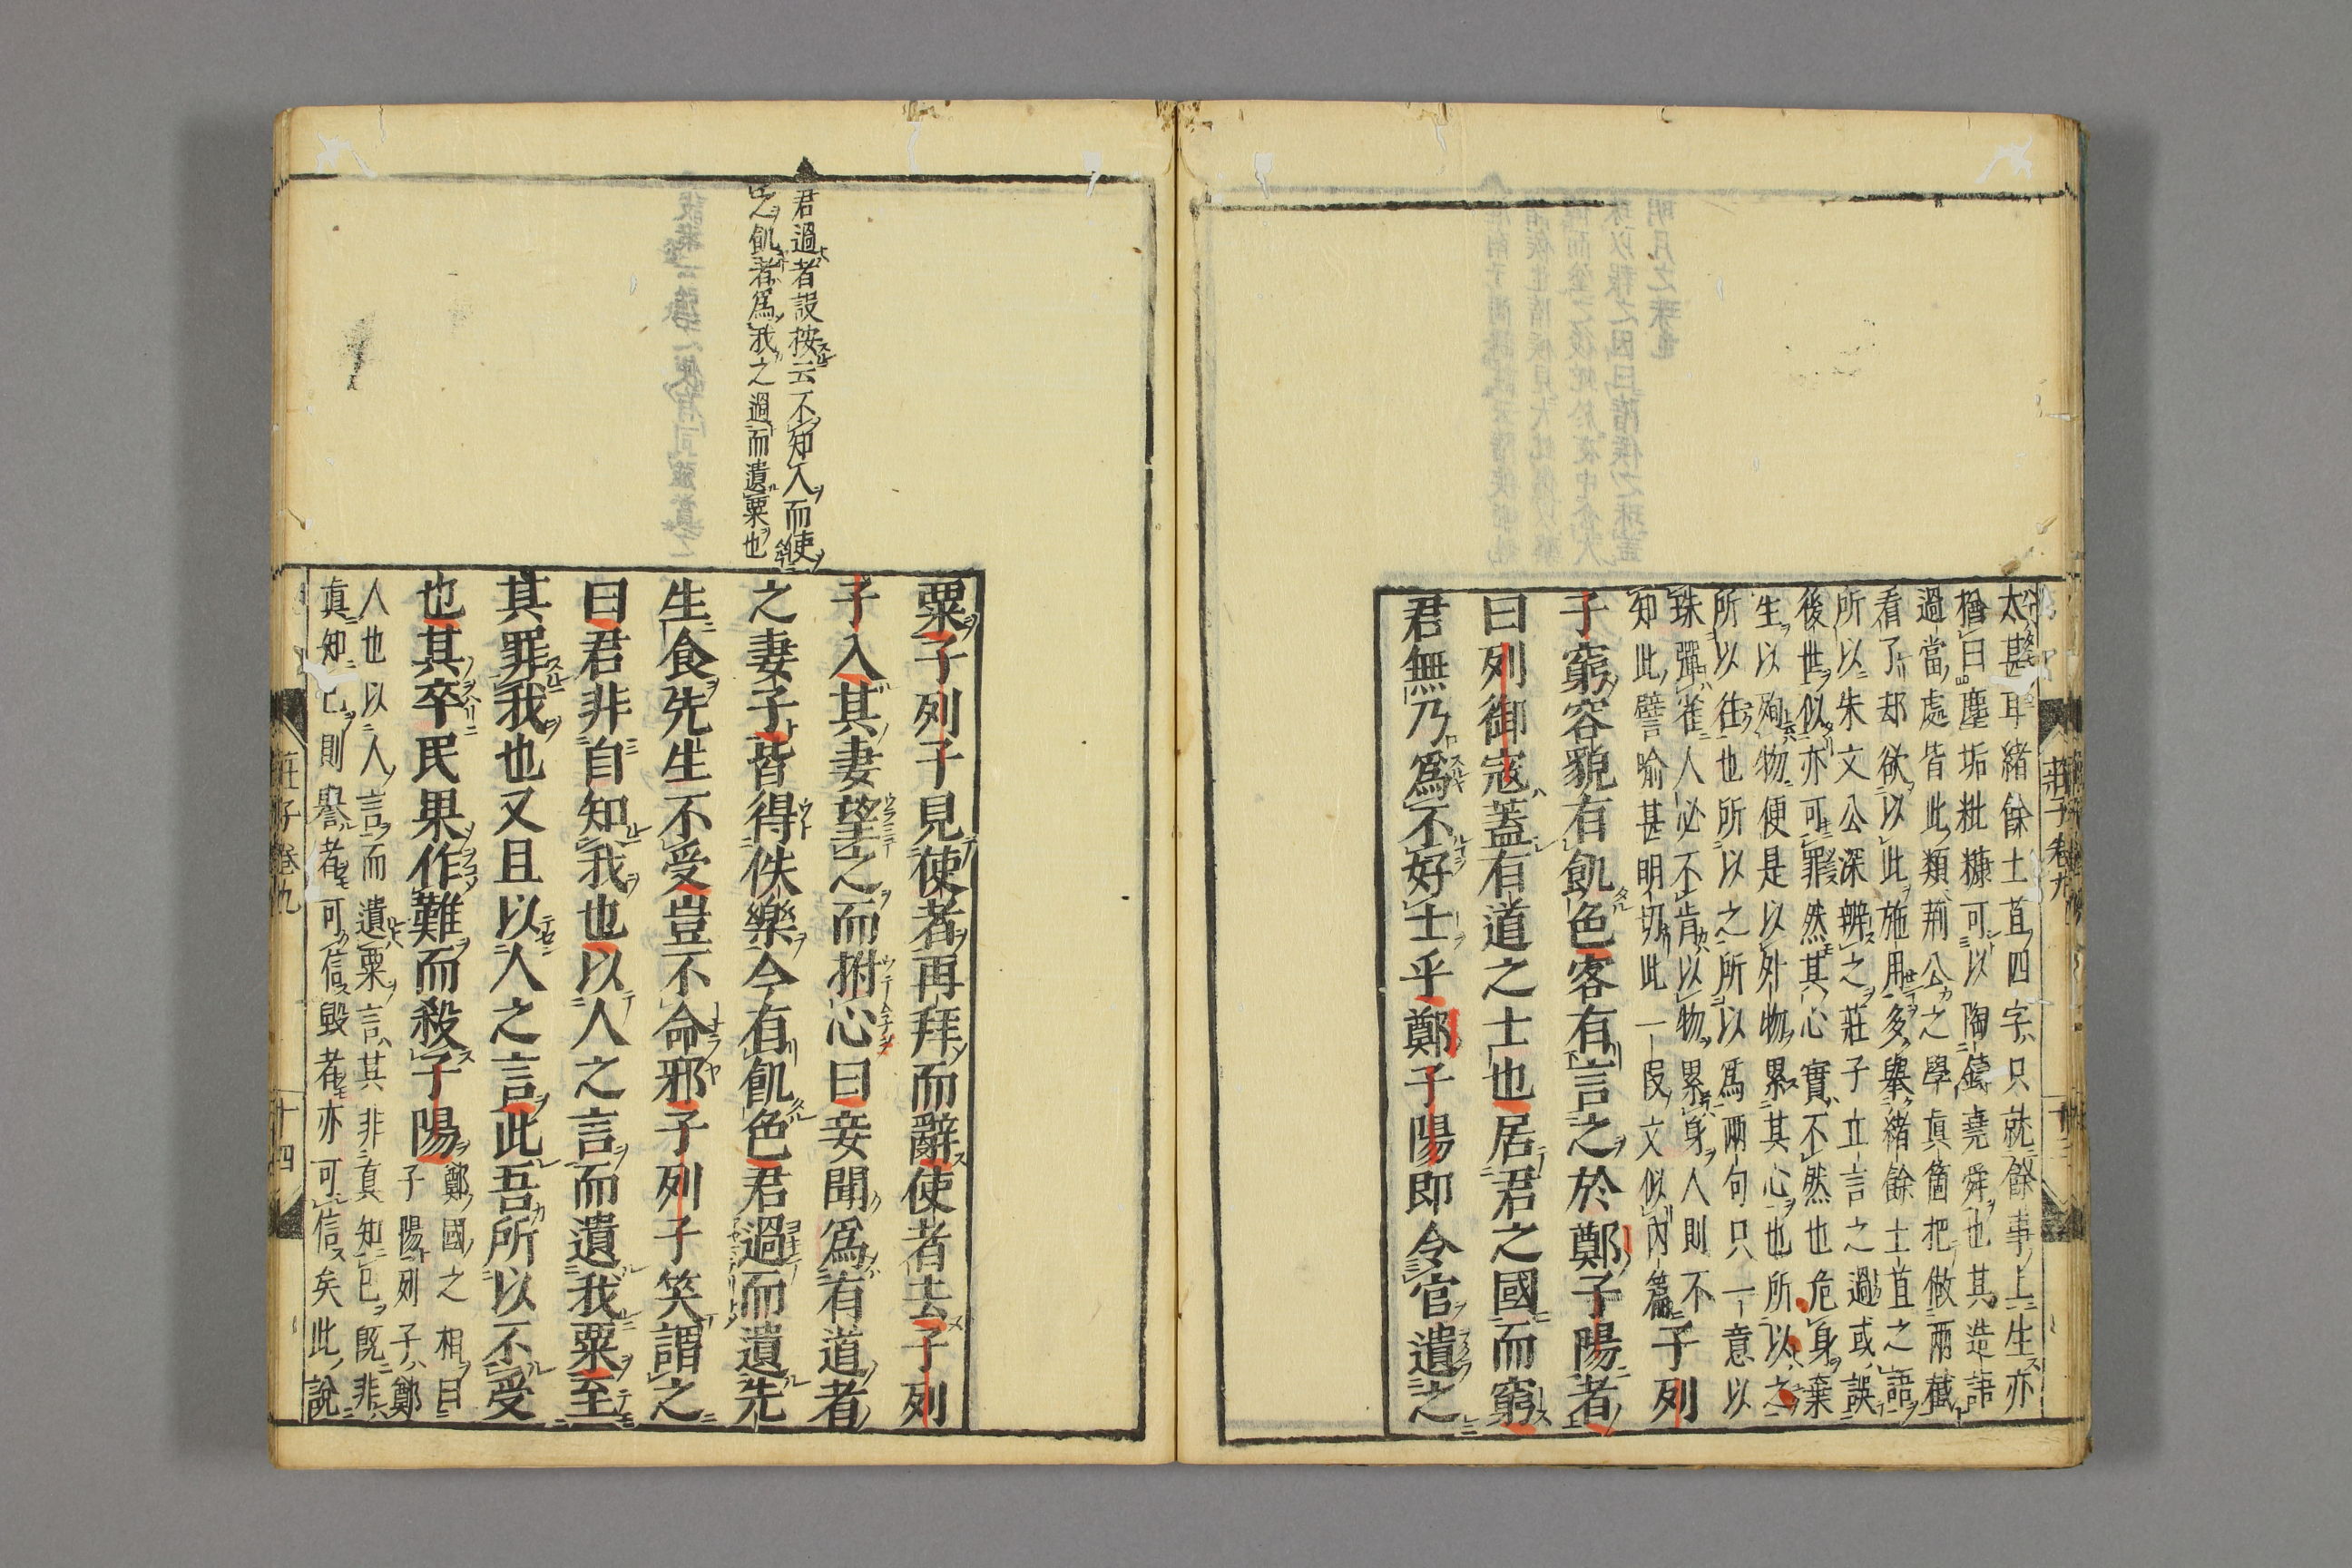 莊子卷九
太甚耳緒餘土苴四字只就餘事上生亦
猶曰塵垢粃糠可以陶鑄堯舜也其造語
過當處皆此類荊公之學真箇把做兩截
看了却欲以此施用多舉緒餘土苴之語
所以朱文公深辨之莊子立言之過或誤
後世似亦可罪然其心實不然也危身棄
生以殉物便是以外物累其心也所以之
所以往也所以之所以為兩句只一意以
珠彈雀人必不肯以物累身人則不
知此譬喻甚明切此一段文似內篇子列
子窮容貌有飢色客有言之於鄭子陽者
曰列御寇蓋有道之士也居君之國而窮
君無乃為不好士乎鄭子陽即令官遺之
君過者設按云不知人而使
之飢者為我之過而遺粟也
粟子列子見使者再拜而辭使者去子列
子入其妻望之而拊心曰妾聞為有道者
之妻子皆得佚樂今有飢色君過而遺先
生食先生不受豈不命邪子列子笑謂之
曰君非自知我也以人之言而遺我粟至
其罪我也又且以人之言此吾所以不受
也其卒民果作難而殺子陽
鄭國之相曰
子陽列子鄭
人也以人言而遺粟言其非真知已既非
真知已則譽者可信毀者亦可信矣此說
莊子卷九
十四